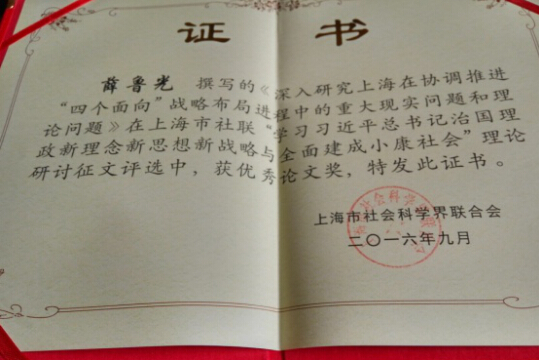 证书
薛鲁光 撰写的《深入研究上海在协调推进
“四个面向”战略布局进程中的重大现实问题和理
论问题》在上海市社联“学习习近平总书记治国理
政新理念新思想新战略与全面建成小康社会”理论
研讨征文评选中，获优秀论文奖，特发此证书。
上海市社会科学界联合会
二〇一六年九月